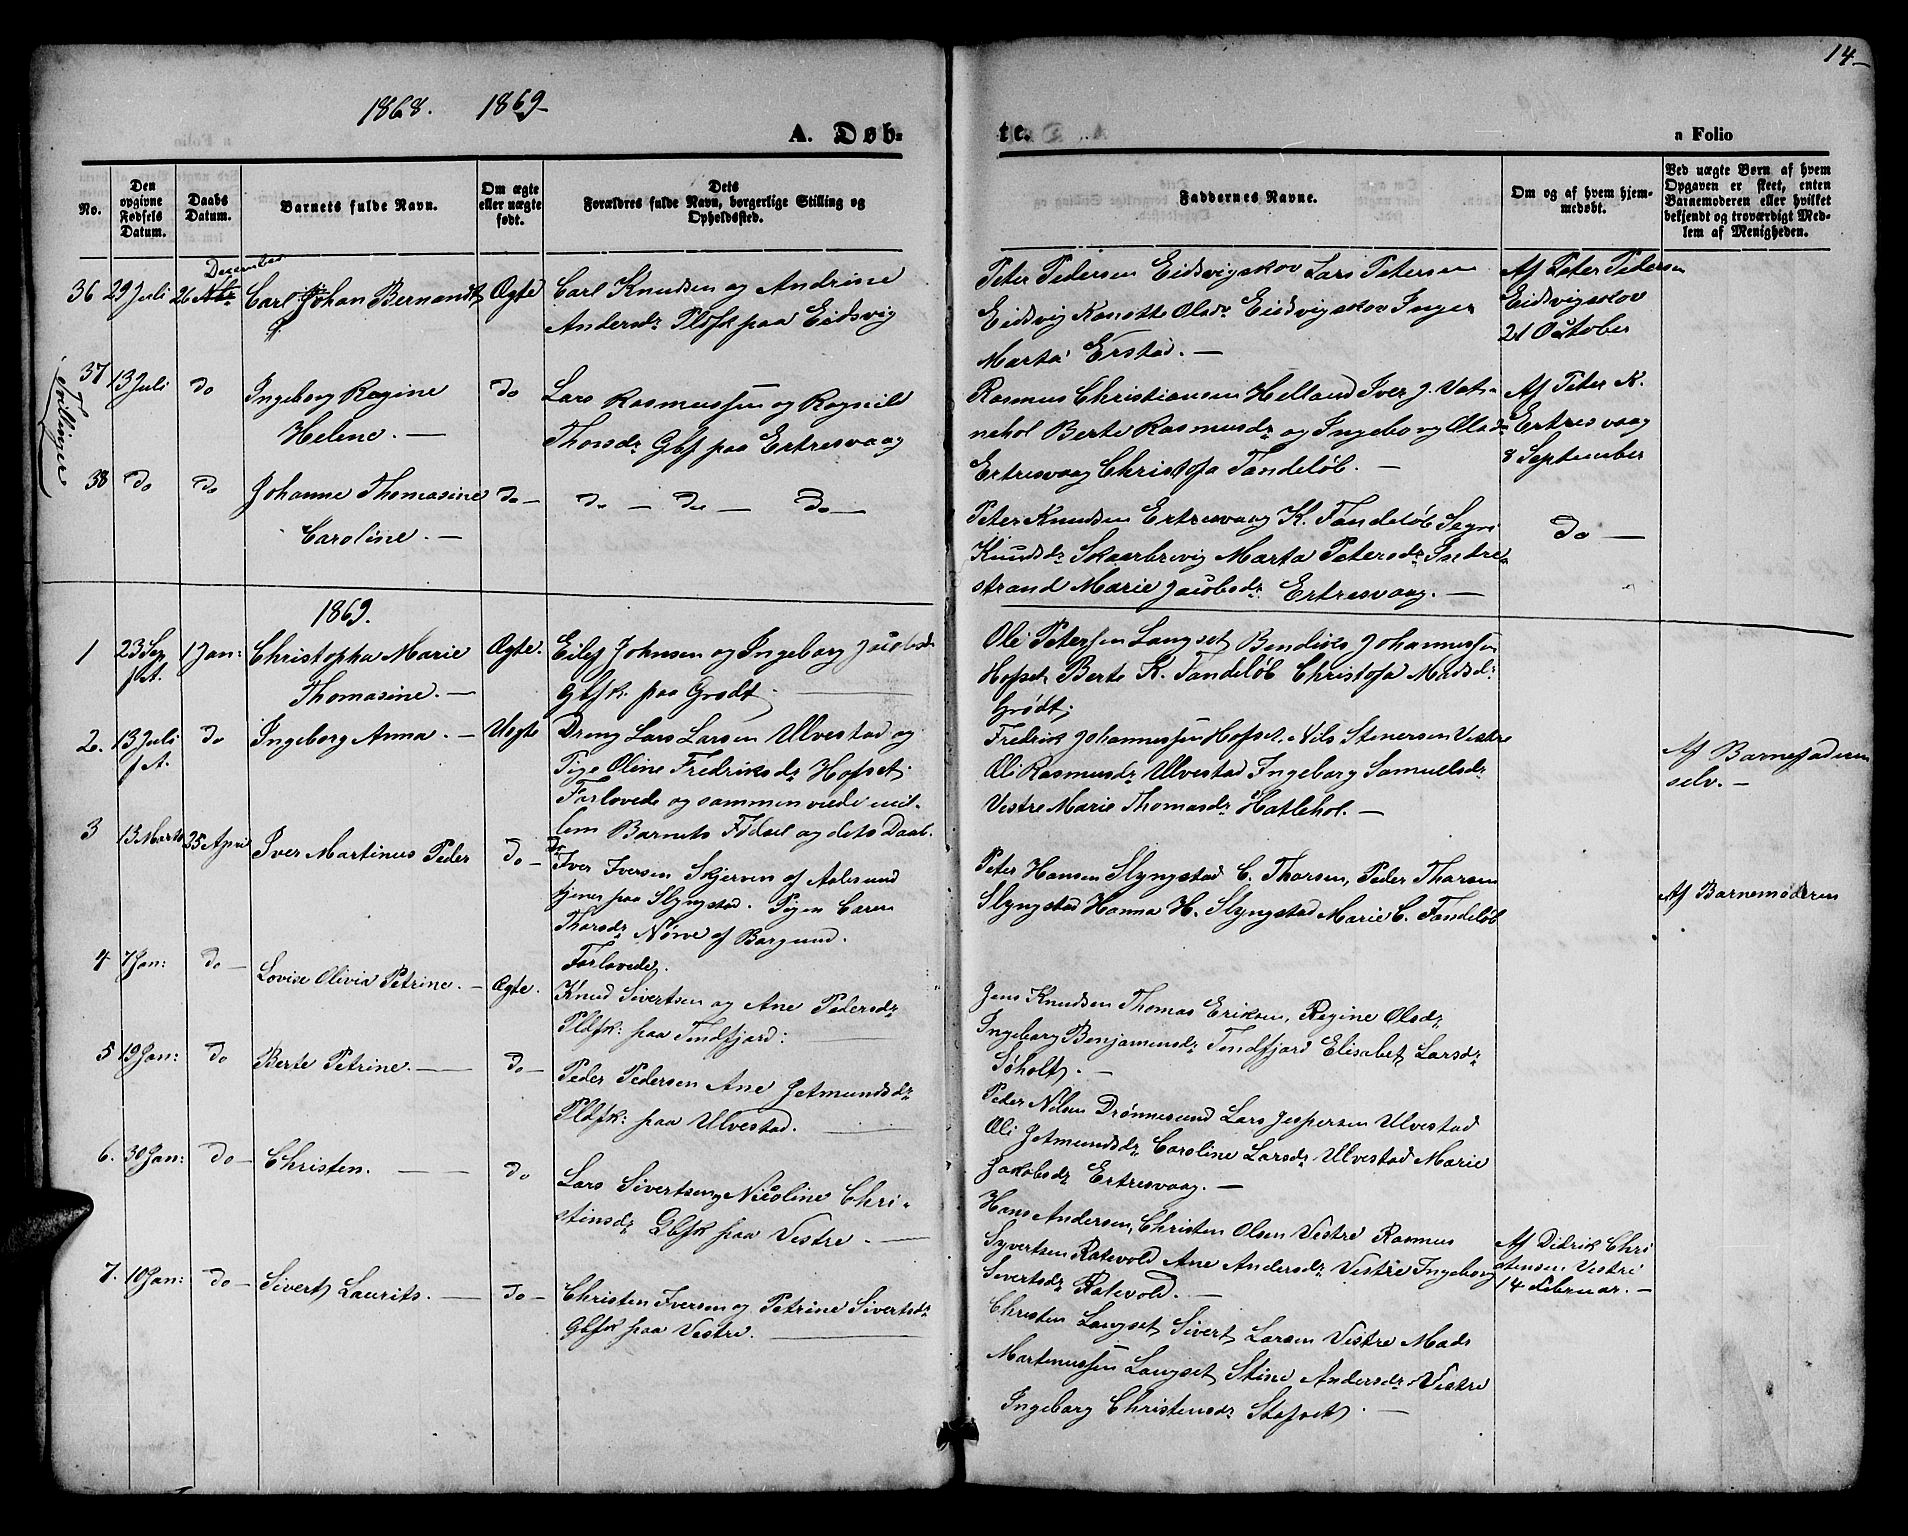 14-
1868. 1869-
A. Døb=
te.
n Folio
No.
Den opgivne Fødsels Datum.
Daabs Datum.
Barnets fulde Navn.
Om ægte eller uægte født.
Dets Forældres fulde Navn, borgerlige Stilling og Opholdssted.
Faddernes Navne.
Om og af hvem hjemmedøbt.
Ved uægte Børn af hvem
Opgaven er skeet, enten
Barnemoderen eller hvilket
bekjendt og troværdigt Med-
lem af Menigheden.
December
36 29 Juli 26 Carl Johan Bernandt Ægte Carl Knudsen og Andrine
Andersdr Pldsfk paa Eidsvig
Peter Pedersen Eidsvigskov Lars Petersen
Eidsvig Kanotte Olsdr Eidsvigskov Inger
Marta Erstad. —
Af Peter Pedersen
Eidsvigskov
21 October
Tvillinger
37 13 Juli do Ingeborg Regine do Lars Rasmussen og Ragnild
Helene. — Thorsdr Gbf paa Ertresvaag
Rasmus Christiansen Helland Iver J. Vat-
nehol Berte Rasmusdr og Ingeborg Olsdr
Ertresvaag Christofa Tandeløb. —
Af Peter K.
Ertresvaag
8 September
38 do do Johanne Thomasine do — do — do — do —
Caroline. —
Peter Knudsen Ertresvaag K. Tandeløb Segri
Knudsdr Skaarbrevig Marta Petersdr Indre
strand Marie Jacobsdr Ertresvaag. —
do —
1869.
1 23 Sep 1 Jan: Christopha Marie Ægte. Eilef Johnsen og Ingeborg Jacobsdr
f A. Thomasine. — Gbfk. paa Grødt. —
Oli Petersen Langset Bendiks Johannessen
Hofset Berte K. Tandeløb Christofa Madsdr
Grødt;
2. 13 Juli do Ingeborg Anna. — Uægte Dreng Lars Larsen Ulvestad og
f A. Pige Oline Fredriksdr Hofset.
Forlovede og sammenviede mil-
lem Barnets Fødsel og dets Daab.
Fredrik Johannessen Hofset, Nils Stenersen Vestre
Oli Rasmusdr Ulvestad Ingeborg Samuelsdr
Vestre Marie Thomasdr Hatlehol. —
Af Barnefaderen
selv. —
3 13 Marts 25 April Iver Martinus Peder do — Iver Iversen Skjerven af Aalesund
tjener paa Slyngstad. Pigen Caren
Thorsdr Nørve af Borgund.
Forlovede.
Peter Hansen Slyngstad C. Thorsen, Peder Thorsen
Slyngstad Hanna H. Slyngstad Marie C. Tandeløb
Af Barnemoderen
4 7 Jan: do — Lovise Olivia Petrine. — Ægte. Knud Sivertsen og Ane Pedersdr
Pldfk: paa Tindfjord: —
Jens Knudsen Thomas Eriksen, Regine Olsdr
Ingeborg Benjaminsdr Tendfjord Elisabet Larsdr
Søholt. —
5 19 Jan: do Berte Petrine. — do — Peder Pedersen Ane Jetmundsdr
Pldfk: paa Ulvestad. —
Peder Nilsen Drønnesund Lars Jespersen Ulvestad
Oli Jetmundsdr Caroline Larsdr Ulvestad Marie
Jakobsdr Ertresvaag. —
6. 30 Jan: do — Christen. — — do Lars Sivertsen og Nicoline Chri-
stinsdr Gbfk paa Vestre. —
Hans Andersen, Christen Olsen Vestre Rasmus
Syvertsen Ratevold Ane Andersdr Vestre Ingeborg
Sivertsdr Ratevold. —
Af Didrik Chri
stensen Vestre
14 Februar. —
7. 10 Jan: do — Sivert Laurits. — do — Christen Iversen og Petrine Sivertsdr
Gbfk paa Vestre. —
Christen Langset Sivert Larsen Vestre Mads
Martinussen Langset Stine Andersdr Vestre
Ingeborg Christensdr Stafset. —